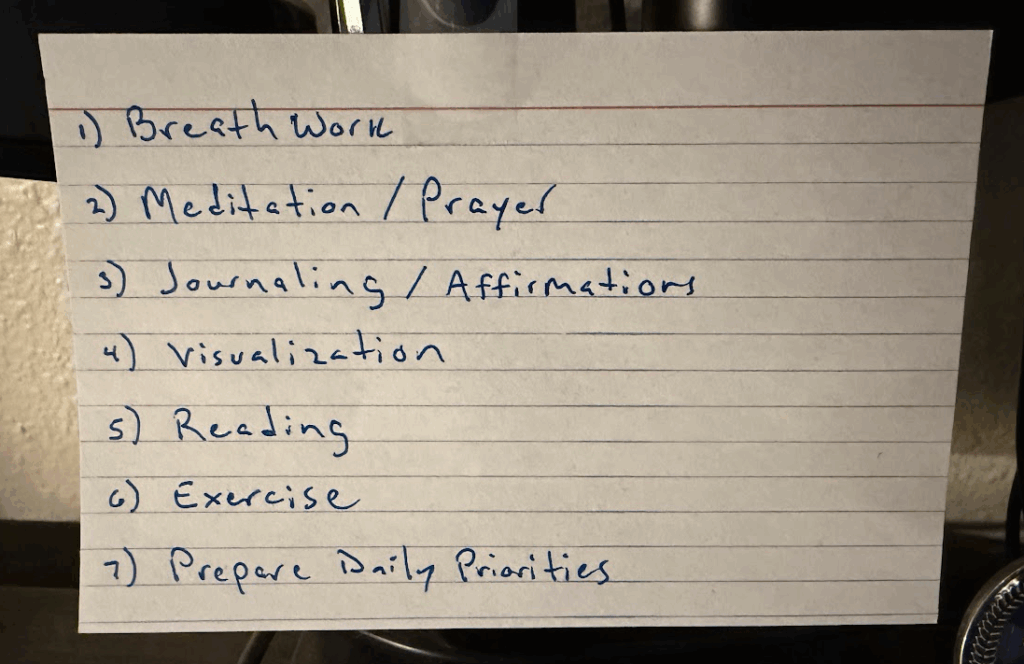 1) Breath Work
2) Meditation / Prayer
3) Journaling / Affirmations
4) Visualization
5) Reading
6) Exercise
7) Prepare Daily Priorities